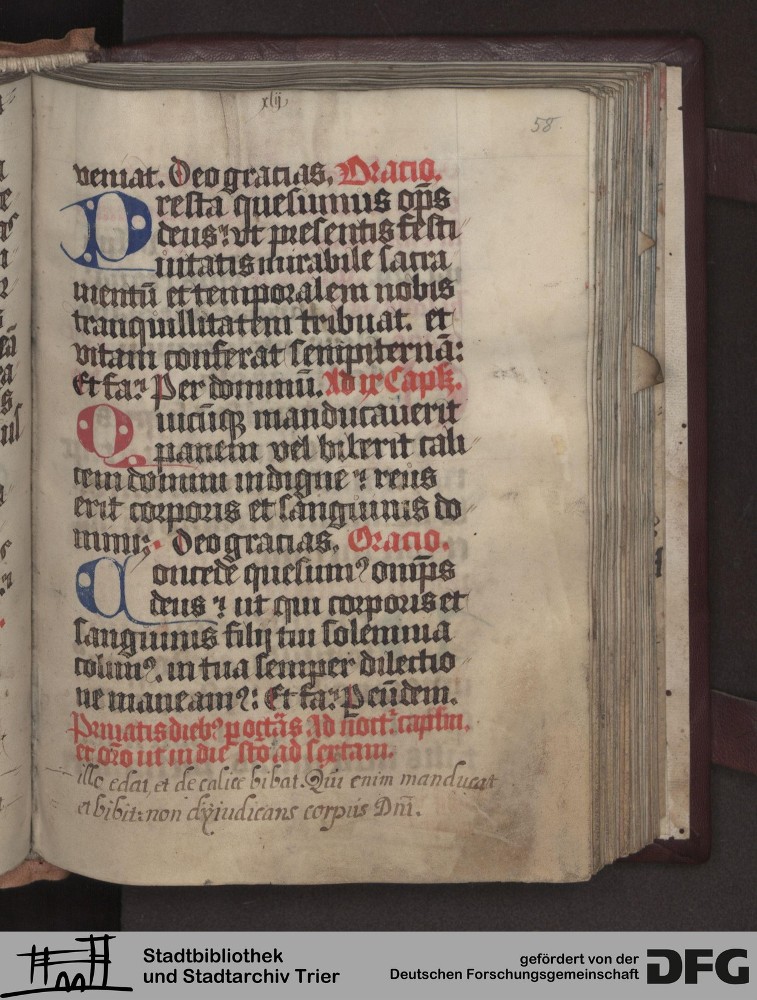 xlij
58.
veniat. Deo gracias. Oracio.
Presta quesumus op̄s
deus: ut presentis festi
uitatis mirabile sacra
mentū et temporalem nobis
tranquillitatem tribuat. et
vitam conferat sempiternā:
Et fa. Per dominū. Ad ix Cap
Quicūq manducauerit
panem vel biberit cali
cem domini indigne: reus
erit corporis et sanguinis do
mini: Deo gracias. Oracio.
Concede quesumꝰ omp̄s
deus: ut qui corporis et
sanguinis filij tui solennia
colimꝰ. in tua semper dilectio
ne maneamꝰ: Et fa. P eūdem.
Priuatis diebꝰ p octās. Ad noct. capi̅m.
et oro ut in die sto ad sextam.
illo edat et de calice bibat. Qui enim manducat
et bibit: non dijudicans corpus Dn̄i.
Stadtbibliothek
und Stadtarchiv Trier
gefördert von der
Deutschen Forschungsgemeinschaft
DFG